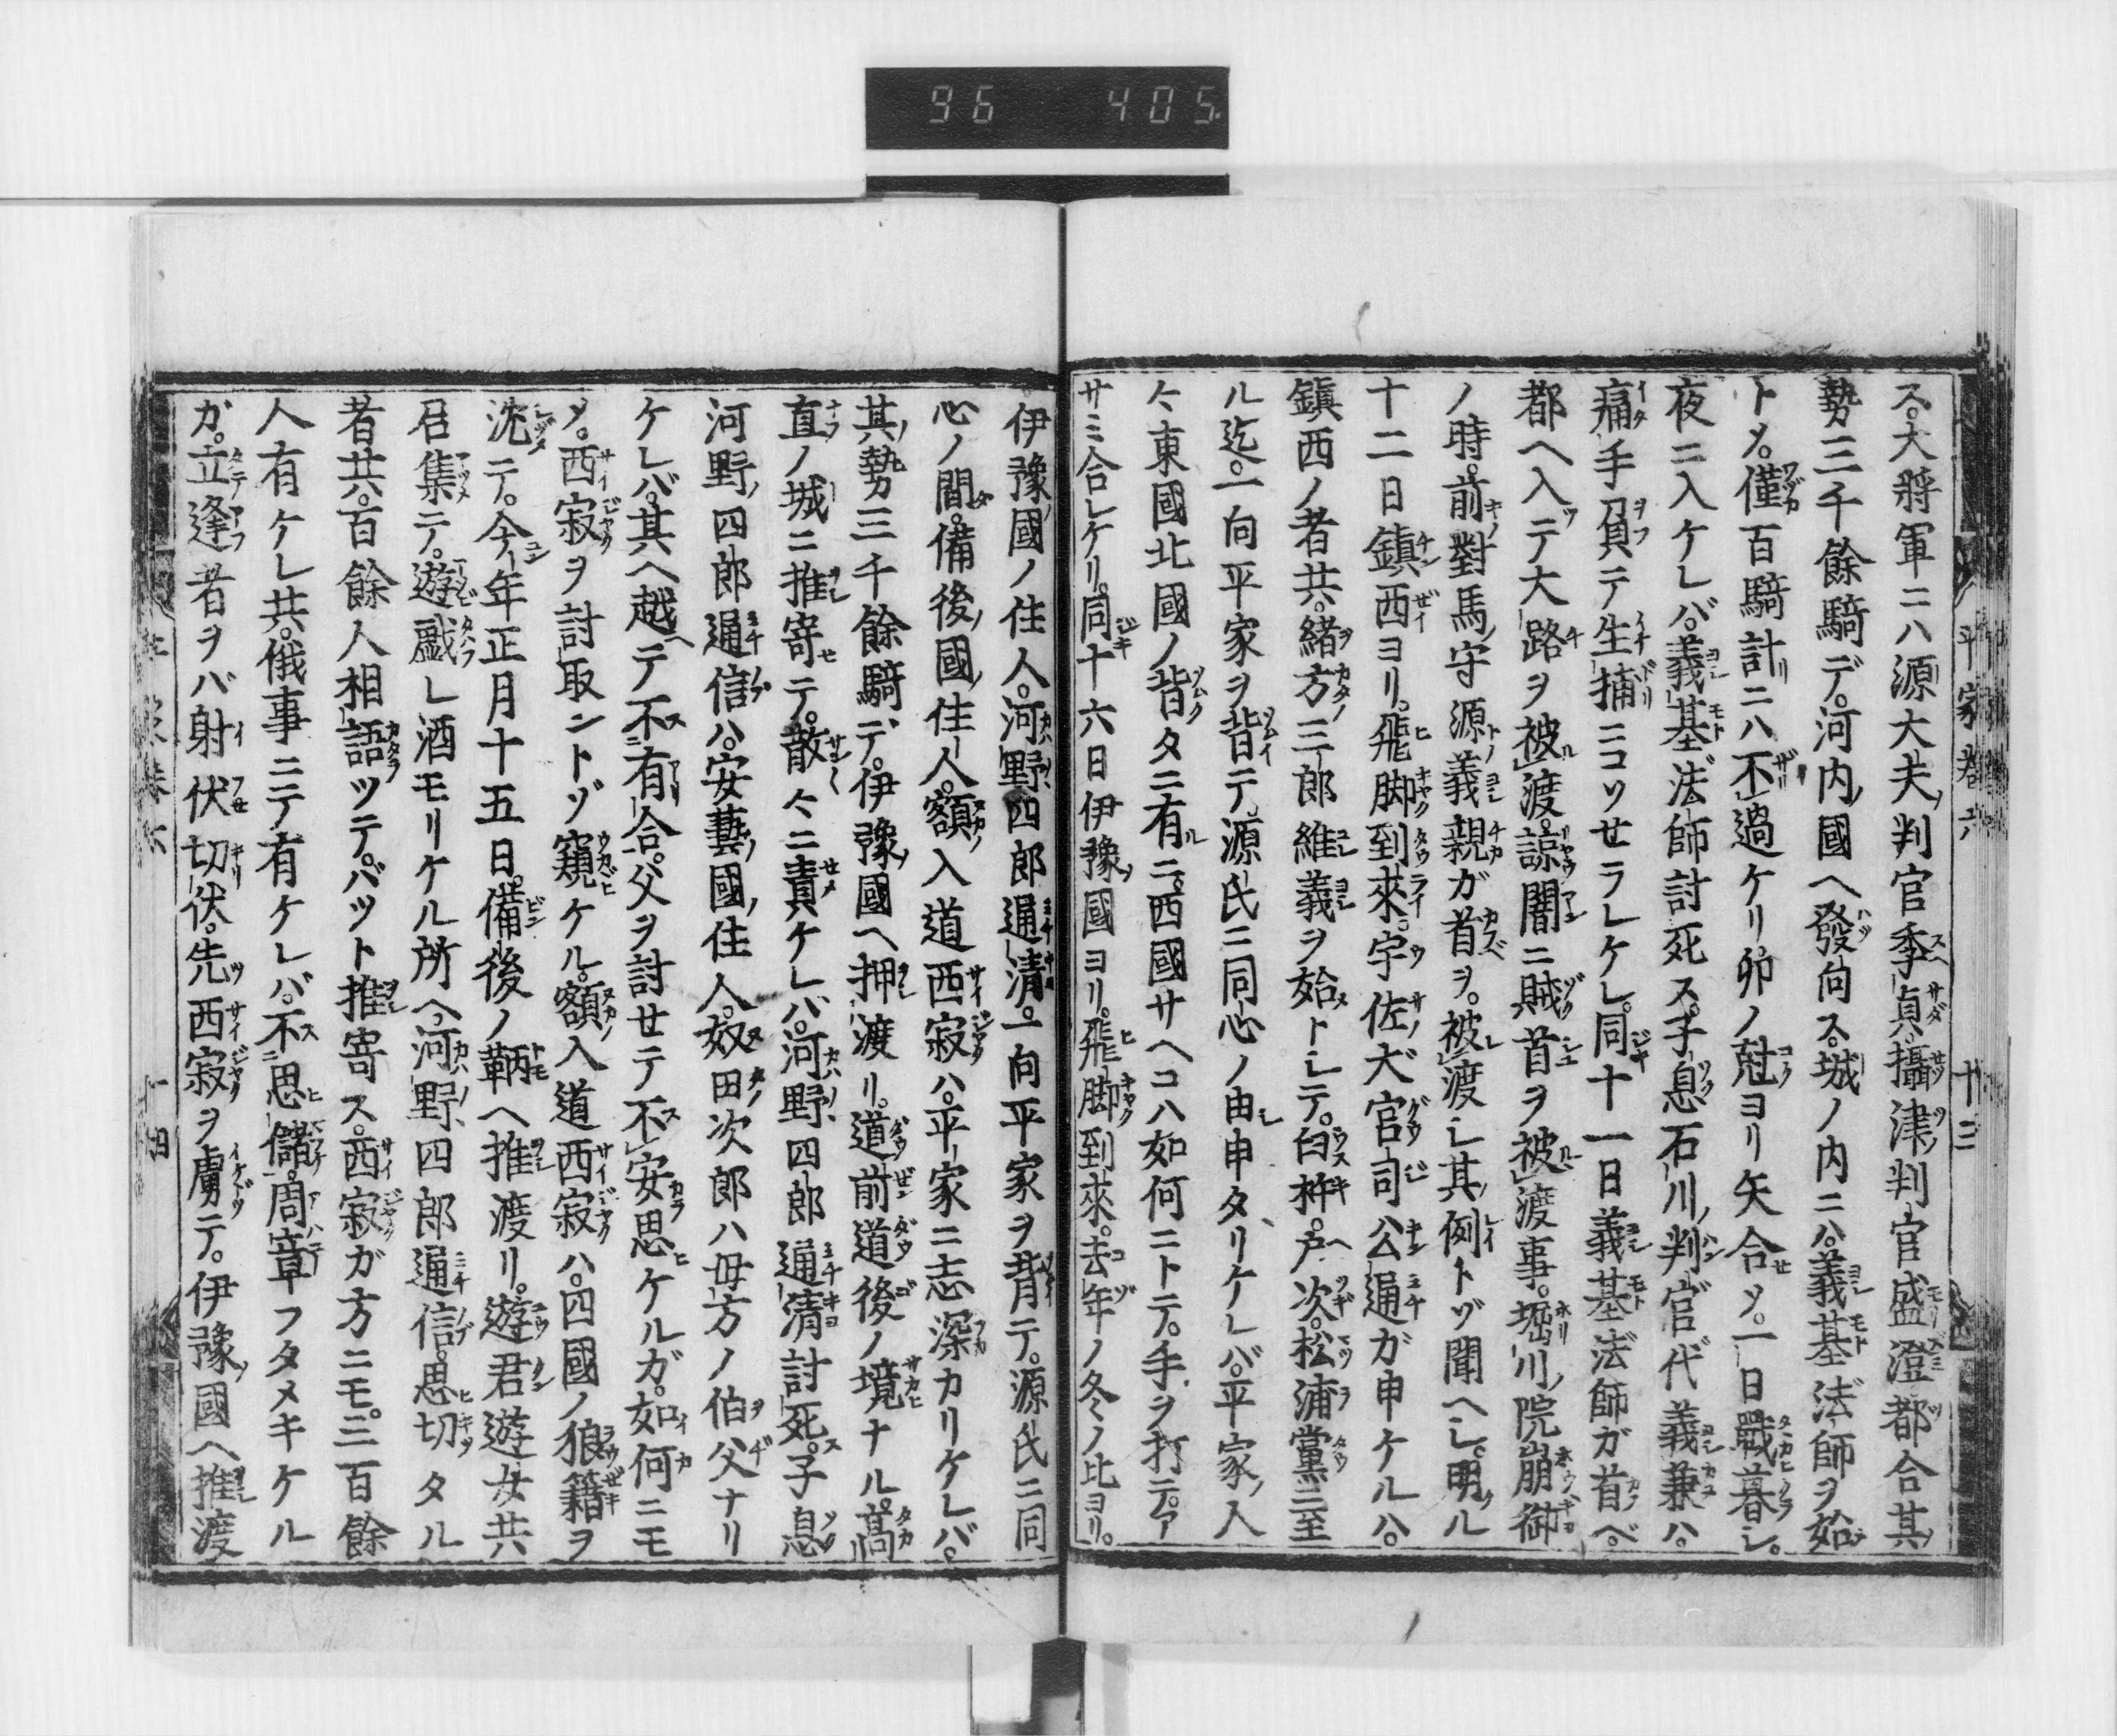 96 405
ス。大將軍ニハ源大夫ノ判官季貞。攝津判官盛澄都合其
勢三千餘騎デ。河内ノ國ヘ發向ス。城ノ内ニハ。義基法師ヲ始
トメ。僅百騎計ニハ不過ケリ。卯ノ尅ヨリ矢合ソ。一日戰暮シ。
夜ニ入ケレバ。義基法師討死ス。子息石川ノ判官代義兼ハ。
痛手負テ生捕ニコソセラレケレ。同十一日義基法師ガ首ベ。
都ヘ入テ大路ヲ被渡。諒闇ニ賊首ヲ被渡事。堀川ノ院崩御
ノ時。前對馬ノ守源義親ガ首ヲ。被渡シ其例トゾ聞ヘシ。明ル
十二日鎭西ヨリ。飛脚到來。宇佐大官司公通ガ申ケルハ。
鎭西ノ者共。緒方三郎維義ヲ始トシテ。臼杵。戸次。松浦黨ニ至
ル迄。一向平家ヲ背テ。源氏ニ同心ノ由申タリケレバ。平家ノ人
々東國北國ノ背タニ有ニ。西國サヘコハ如何ニトテ。手ヲ打テア
サミ合レケリ。同十六日伊豫ノ國ヨリ。飛脚到來。去年ノ冬ノ比ヨリ。
平家卷六 十三
伊豫國ノ住人。河野四郎通清。一向平家ヲ背テ。源氏ニ同
心ノ間。備後國ノ住人。額入道西寂ハ。平家ニ志深カリケレバ。
其勢三千餘騎デ。伊豫國ヘ押渡リ。道前道後ノ境ナル。高
直ノ城ニ推寄テ。散々ニ責ケレバ。河野四郎通清討死。子息
河野四郎通信ハ。安藝國ノ住人。奴田次郎ハ母方ノ伯父ナリ
ケレバ。其ヘ越テ不有合。父ヲ討セテ不安思ケルガ。如何ニモ
メ。西寂ヲ討取ントゾ窺ケル。額入道西寂ハ。四國ノ狼籍ヲ
沈テ。今年正月十五日。備後ノ鞆ヘ推渡リ。遊君遊女共
召集テ。遊戯レ酒モリケル所ヘ。河野四郎通信。思切タル
者共。百餘人相語ツテ。バット推寄ス。西寂ガ方ニモ。三百餘
人有ケレ共。俄事ニテ有ケレバ。不思儲。周章フタメキケル
ガ。立逢者ヲバ射伏切伏。先西寂ヲ虜テ。伊豫國ヘ推渡